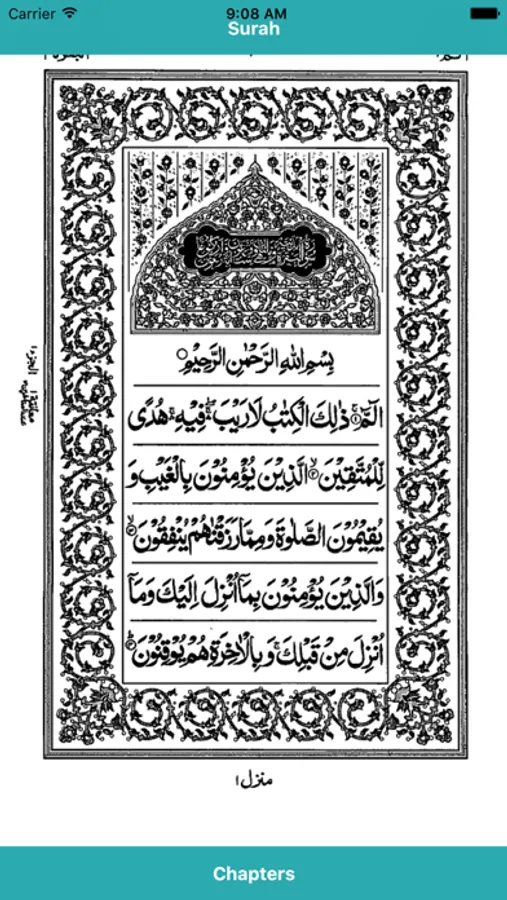 Carrier 9:08 AM
Surah
بِسْمِ اللهِ الرَّحْمٰنِ الرَّحِيْمِ
الٓمّٓ ۚ ذٰلِكَ الْكِتٰبُ لَا رَيْبَ ۛ فِيْهِ ۛ هُدًى
لِّلْمُتَّقِيْنَ ۙ الَّذِيْنَ يُؤْمِنُوْنَ بِالْغَيْبِ وَ
يُقِيْمُوْنَ الصَّلٰوةَ وَمِمَّا رَزَقْنٰهُمْ يُنْفِقُوْنَ ۙ
وَالَّذِيْنَ يُؤْمِنُوْنَ بِمَآ اُنْزِلَ اِلَيْكَ وَمَآ
اُنْزِلَ مِنْ قَبْلِكَ ۚ وَبِالْاٰخِرَةِ هُمْ يُوْقِنُوْنَ ؕ
منزل ١
Chapters